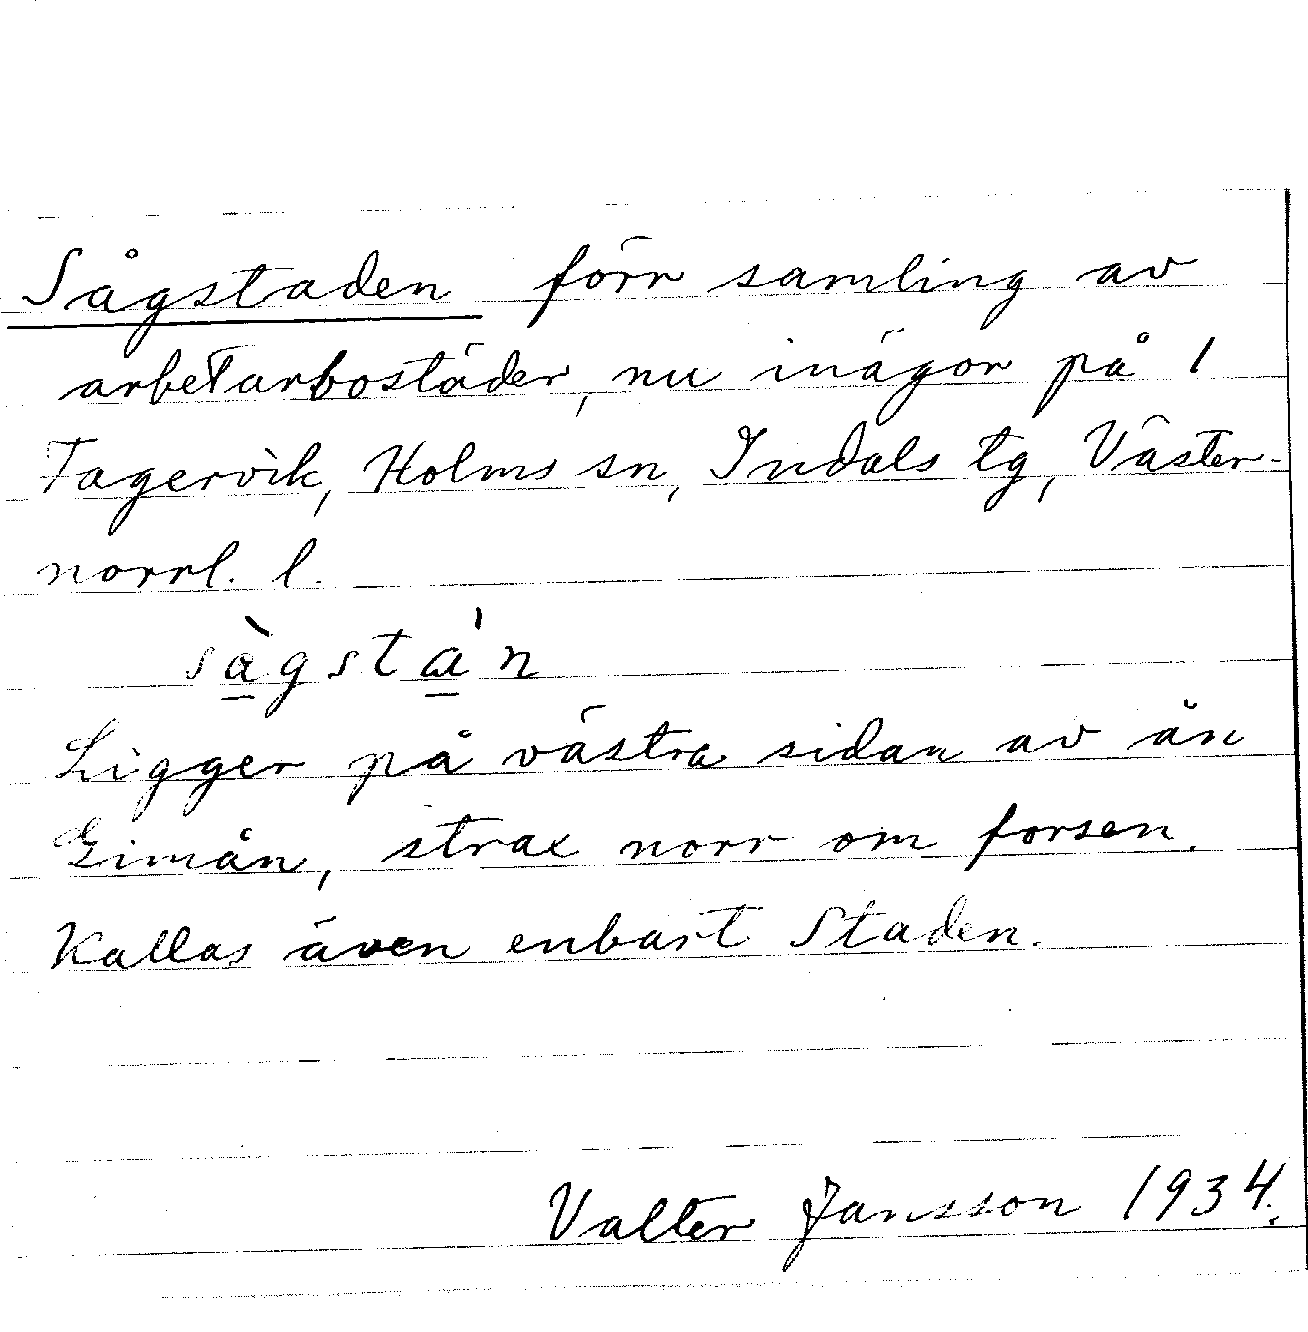 Sågstaden förr samling av
arbetarbostäder, nu inägor på 1
Fagervik, Holms sn, Indals tg, Väster-
norrl. l.
sà̲gstá̲n
Ligger på västra sidan av ån
Gimån, strax norr om forsen.
Kallas även enbart Staden.
Valter Jansson 1934.